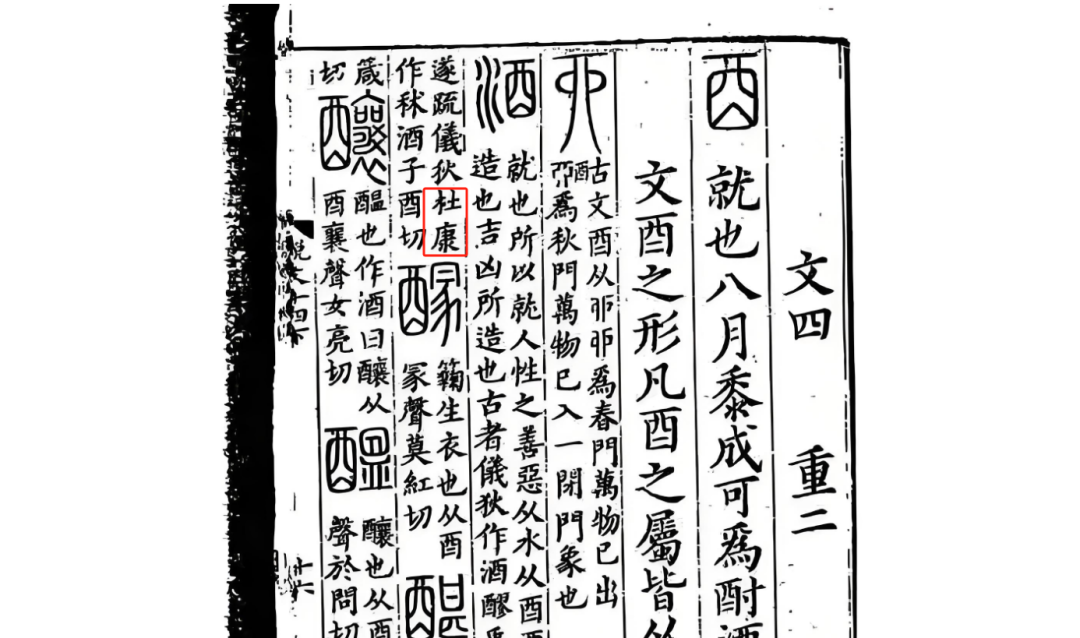 文四 重二
酉 就也八月黍成可爲酎酒
文酉之形凡酉之屬皆从
丣 古文酉从丣丣爲春門萬物已出
丣爲秋門萬物已入一閉門象也
酒 就也所以就人性之善惡从水从酉酉
造也吉凶所造也古者儀狄作酒醪
遂疏儀狄杜康
作秫酒子酉切
䤓 籟生衣也从酉
冡聲莫紅切
箴
切
釀 醞也作酒曰釀从
酉襄聲女亮切
醞 釀也从酉
聲於問切
十六